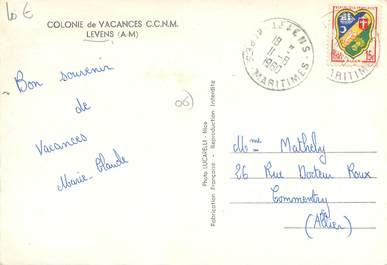 10 €
COLONIE de VACANCES C.C.N.M.
LEVENS (A-M)
Bon souvenir
de
Vacances
Marie-Claude
06)
Photo LUCARELLI - Nice
Fabrication Française - Reproduction Interdite
LEVENS
MARITIMES
MARITIMES
Mme Mathely
26 Rue Docteur Roux
Commentry
(Allier)